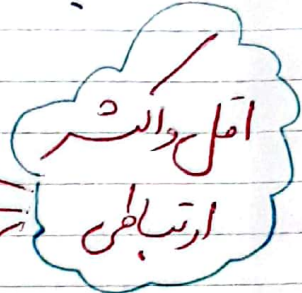 اقل واکثر
ارتباطی